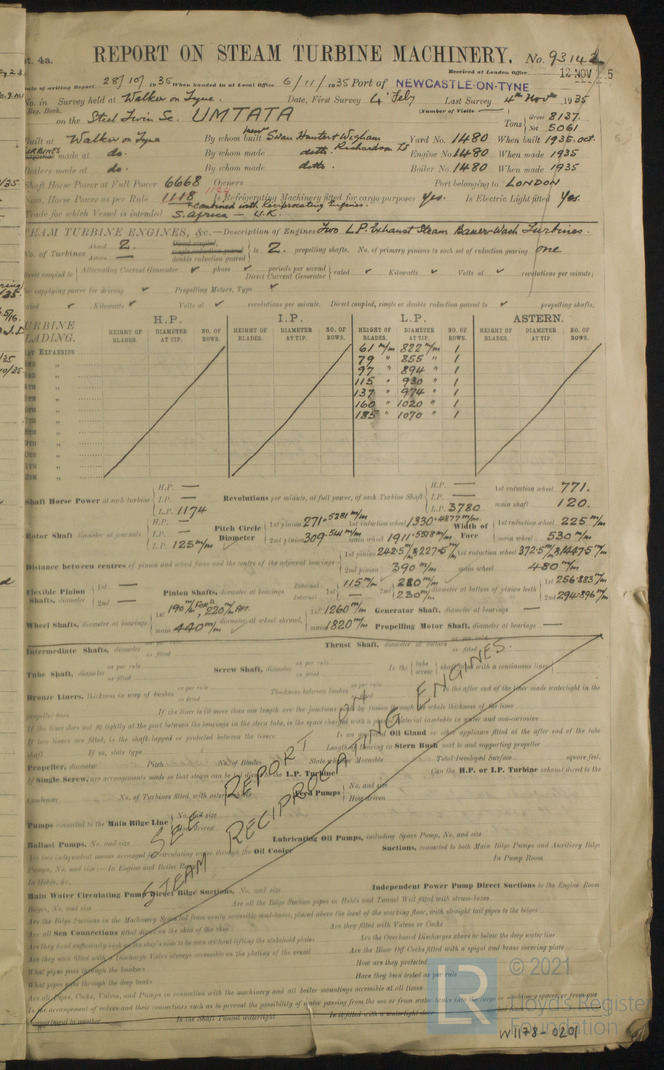 pt. 4a.
REPORT ON STEAM TURBINE MACHINERY. No. 93142
Received at London Office 12 NOV
Date of writing Report 28/10/1935 When handed in at Local Office 6/11/1935 Port of NEWCASTLE-ON-TYNE
No. in Survey held at Walker on Tyne. Date, First Survey 4 Feby Last Survey 4th Novr 1935
Reg. Book. (Number of Visits
on the Steel Twin Sc. UMTATA Tons Gross 8137. Net 5061
Built at Walker on Tyne By whom built Swan Hunter & Wigham Richardson Ld Yard No. 1480 When built 1935. oct.
made at do. By whom made ditto Engine No. 1480 When made 1935
Boilers made at do. By whom made ditto. Boiler No. 1480 When made 1935
Shaft Horse Power at Full Power 6668 Owners Port belonging to LONDON
Nom. Horse Power as per Rule 1118 Is Refrigerating Machinery fitted for cargo purposes Yes. Is Electric Light fitted Yes.
Combined with Reciprocating Engines.
Trade for which Vessel is intended S. Africa — U.K.
STEAM TURBINE ENGINES, &c.—Description of Engines Two L.P. Exhaust Steam Bauer-Wach Turbines.
No. of Turbines Ahead 2. Astern — Direct coupled, single reduction geared double reduction geared to 2. propelling shafts. No. of primary pinions to each set of reduction gearing one
direct coupled to Alternating Current Generator phase periods per second Direct Current Generator rated Kilowatts Volts at revolutions per minute;
for supplying power for driving Propelling Motors, Type
rated Kilowatts Volts at revolutions per minute. Direct coupled, single or double reduction geared to propelling shafts.
TURBINE BLADING. H.P. I.P. L.P. ASTERN.
HEIGHT OF BLADES. DIAMETER AT TIP. NO. OF ROWS. HEIGHT OF BLADES. DIAMETER AT TIP. NO. OF ROWS. HEIGHT OF BLADES. DIAMETER AT TIP. NO. OF ROWS. HEIGHT OF BLADES. DIAMETER AT TIP. NO. OF ROWS.
EXPANSION 61 m/m 822 m/m 1
79 " 855 " 1
97 " 894 " 1
115 " 930 " 1
137 " 974 " 1
160 " 1020 " 1
185 " 1070 " 1
Shaft Horse Power at each turbine H.P. — I.P. — L.P. 1174 Revolutions per minute, at full power, of each Turbine Shaft H.P. — I.P. — L.P. 3780 1st reduction wheel 771. main shaft 120.
Rotor Shaft diameter at journals H.P. — I.P. — L.P. 125 m/m Pitch Circle Diameter 1st pinion 271.5281 m/m 2nd pinion 309.541 m/m 1st reduction wheel 1330.4877 m/m main wheel 1911.5598 m/m Width of Face 1st reduction wheel 225 m/m main wheel 530 m/m
Distance between centres of pinion and wheel faces and the centre of the adjacent bearings 1st pinion 2nd pinion 390 m/m 1st reduction wheel main wheel 480 m/m
Flexible Pinion Shafts, diameter 1st — 2nd — Pinion Shafts, diameter at bearings External 1st 115 m/m 2nd 280 m/m Internal 1st — 2nd 230 m/m diameter at bottom of pinion teeth 1st 256.883 m/m 2nd 294.896 m/m
Wheel Shafts, diameter at bearings 1st 190 m/m For'd 220 m/m Aft. main 440 m/m diameter at wheel shroud, 1st 1260 m/m main 1820 m/m Generator Shaft, diameter at bearings — Propelling Motor Shaft, diameter at bearings —
Intermediate Shafts, diameter as per rule as fitted Thrust Shaft, diameter at collars as per rule as fitted
Tube Shaft, diameter as per rule as fitted Screw Shaft, diameter as per rule as fitted Is the tube screw shaft fitted with a continuous liner
Bronze Liners, thickness in way of bushes as per rule as fitted Thickness between bushes as per rule as fitted Is the after end of the liner made watertight in the
propeller boss If the liner is in more than one length are the junctions made by fusion through the whole thickness of the liner
If the liner does not fit tightly at the part between the bearings in the stern tube, is the space charged with a plastic material insoluble in water and non-corrosive
If two liners are fitted, is the shaft lapped or protected between the liners Is an approved Oil Gland or other appliance fitted at the after end of the tube
shaft If so, state type Length of Bearing in Stern Bush next to and supporting propeller
Propeller, diameter Pitch No. of Blades State whether Moveable Total Developed Surface square feet.
If Single Screw, are arrangements made so that steam can be led direct to the L.P. Turbine Can the H.P. or I.P. Turbine exhaust direct to the
Condenser No. of Turbines fitted with astern wheels Feed Pumps No. and size How driven
Pumps connected to the Main Bilge Line No. and size How driven
Ballast Pumps, No. and size Lubricating Oil Pumps, including Spare Pump, No. and size
Are two independent means arranged for circulating water through the Oil Cooler Suctions, connected to both Main Bilge Pumps and Auxiliary Bilge
Pumps, No. and size:—In Engine and Boiler Room In Pump Room
In Holds, &c.
Main Water Circulating Pump Direct Bilge Suctions, No. and size Independent Power Pump Direct Suctions to the Engine Room
Bilges, No. and size Are all the Bilge Suction pipes in Holds and Tunnel Well fitted with strum-boxes
Are the Bilge Suctions in the Machinery Space led from easily accessible mud-boxes, placed above the level of the working floor, with straight tail pipes to the bilges
Are all Sea Connections fitted direct on the skin of the ship Are they fitted with Valves or Cocks
Are they fixed sufficiently high on the ship's side to be seen without lifting the stokehold plates Are the Overboard Discharges above or below the deep water line
Are they each fitted with a Discharge Valve always accessible on the plating of the vessel Are the Blow Off Cocks fitted with a spigot and brass covering plate
What pipes pass through the bunkers How are they protected
What pipes pass through the deep tanks Have they been tested as per rule
Are all Pipes, Cocks, Valves, and Pumps in connection with the machinery and all boiler mountings accessible at all times
Is the arrangement of valves and their connections such as to prevent the possibility of water passing from the sea or from water tanks into the cargo or machinery spaces, or from one
compartment to another Is the Shaft Tunnel watertight Is it fitted with a watertight door
SEE REPORT ON
STEAM RECIPROCATING ENGINES.
LR © 2021
Lloyd's Register
Foundation
W1178-0201